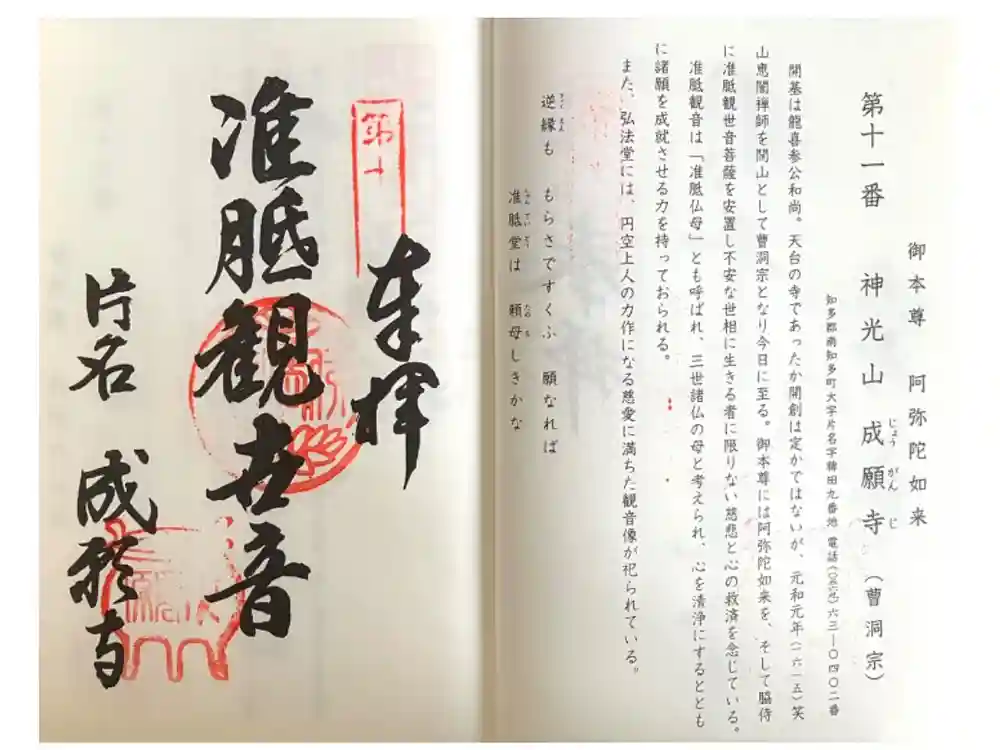 御本尊 阿弥陀如来
第十一番 神光山 成願寺 (曹洞宗)
じょう がん じ
知多郡南知多町大字片名字稗田九番地 電話(〇五六九)六三ー〇四〇二番
開基は龍喜参公和尚。天台の寺であったか開創は定かではないが、元和元年(一六一五)笑
山恵誾禅師を開山として曹洞宗となり今日に至る。御本尊には阿弥陀如来を、そして脇侍
に准胝観世音菩薩を安置し不安な世相に生きる者に限りない慈悲と心の救済を念じている。
准胝観音は「准胝仏母」とも呼ばれ、三世諸仏の母と考えられ、心を清浄にするととも
に諸願を成就させる力を持っておられる。
また、弘法堂には、円空上人の力作になる慈愛に満ちた観音像が祀られている。
逆縁も もらさですくふ 願なれば
ぎゃくえん
准胝堂は 頼母しきかな
じゅんていどう たのも
第十
奉拝
准胝観世音
片名 成願寺